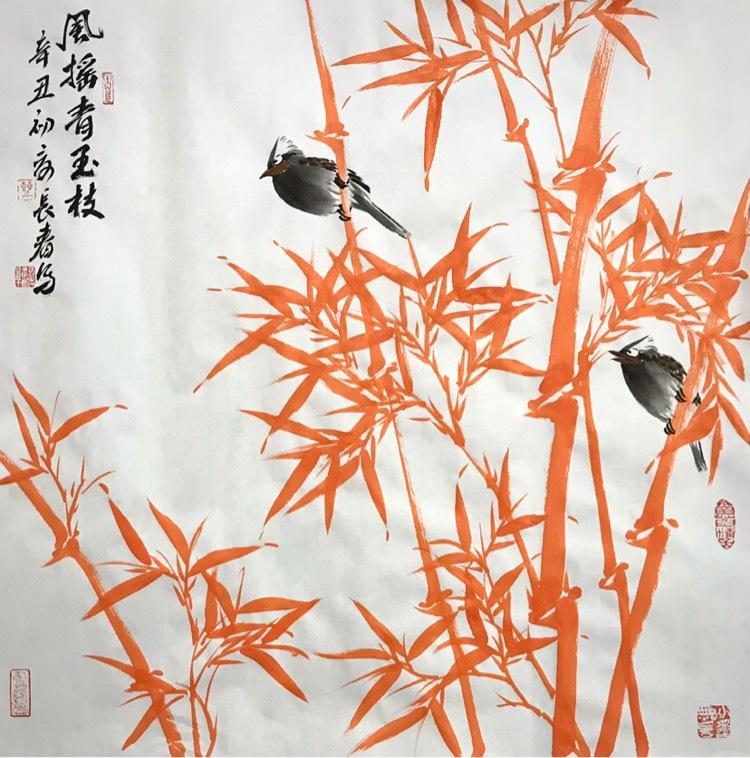 風摇青玉枝
辛丑初夏長春写